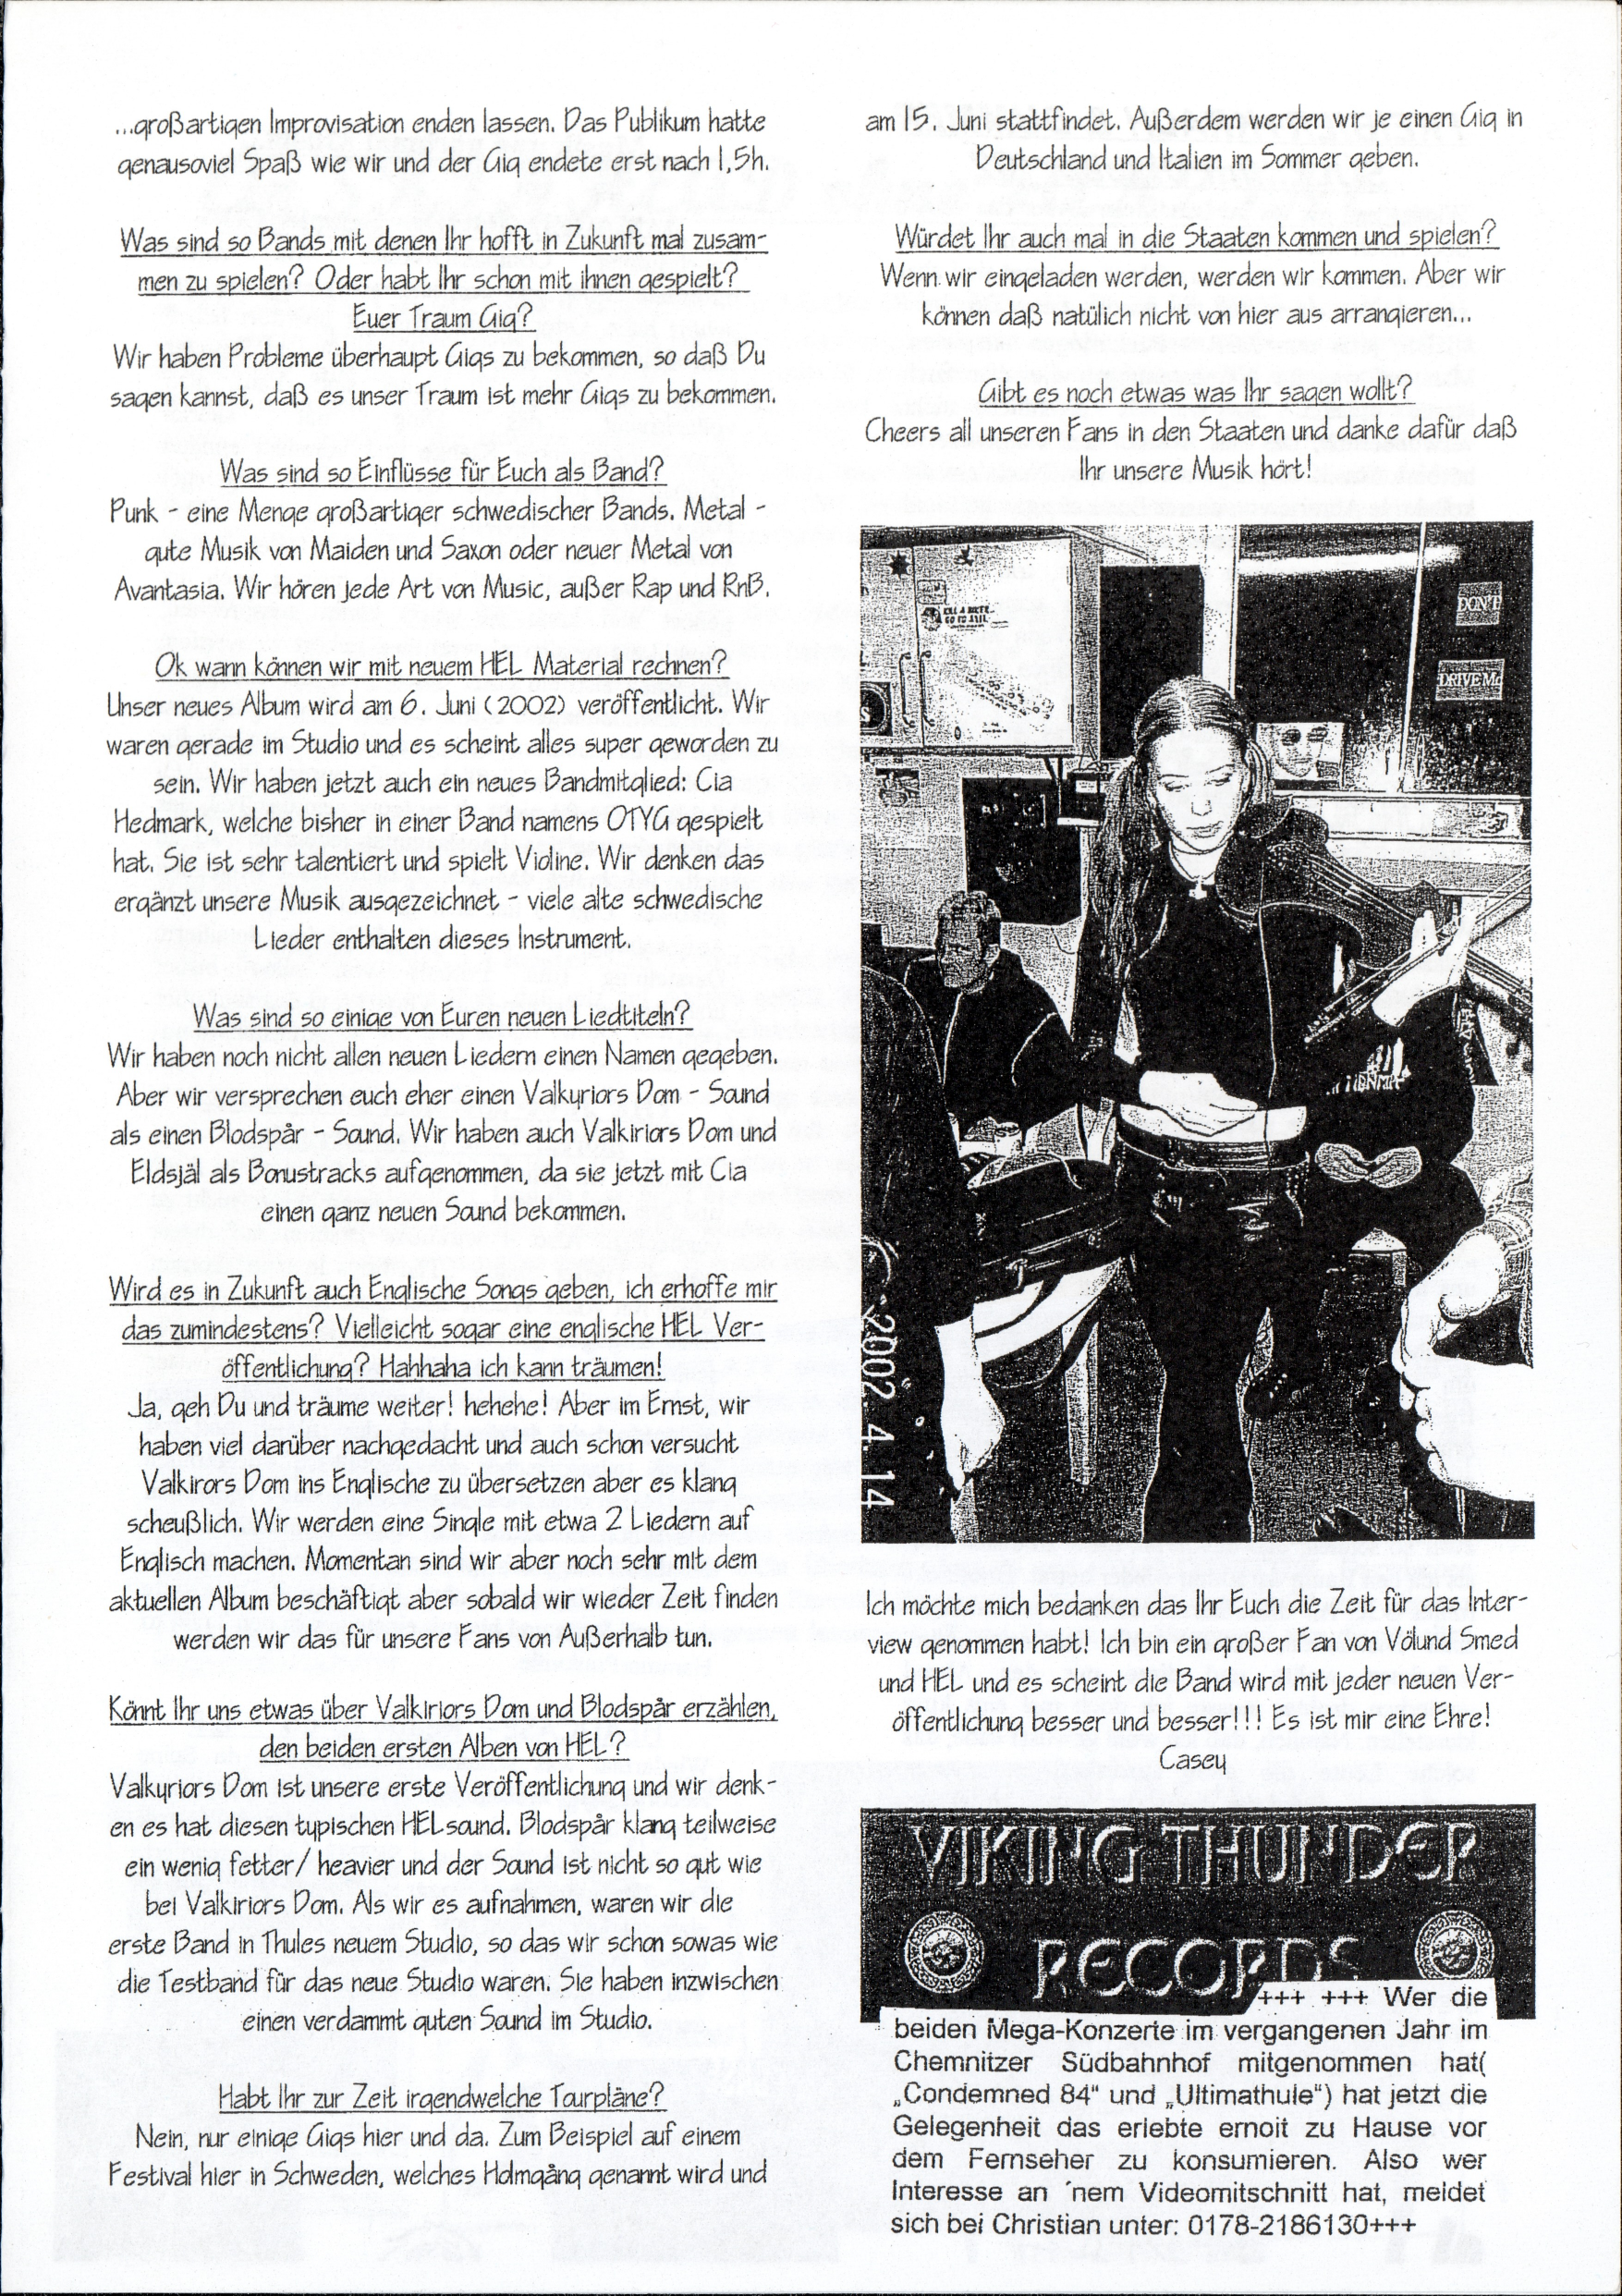 ...großartigen Improvisation enden lassen. Das Publikum hatte
genausoviel Spaß wie wir und der Gig endete erst nach 1,5h.
Was sind so Bands mit denen Ihr hofft in Zukunft mal zusam-
men zu spielen? Oder habt Ihr schon mit ihnen gespielt?
Euer Traum Gig?
Wir haben Probleme überhaupt Gigs zu bekommen, so daß Du
sagen kannst, daß es unser Traum ist mehr Gigs zu bekommen.
Was sind so Einflüsse für Euch als Band?
Punk - eine Menge großartiger schwedischer Bands. Metal -
gute Musik von Maiden und Saxon oder neuer Metal von
Avantasia. Wir hören jede Art von Music, außer Rap und RnB.
Ok wann können wir mit neuem HEL Material rechnen?
Unser neues Album wird am 6. Juni (2002) veröffentlicht. Wir
waren gerade im Studio und es scheint alles super geworden zu
sein. Wir haben jetzt auch ein neues Bandmitglied: Cia
Hedmark, welche bisher in einer Band namens OTYG gespielt
hat. Sie ist sehr talentiert und spielt Violine. Wir denken das
ergänzt unsere Musik ausgezeichnet - viele alte schwedische
Lieder enthalten dieses Instrument.
Was sind so einige von Euren neuen Liedtiteln?
Wir haben noch nicht allen neuen Liedern einen Namen gegeben.
Aber wir versprechen euch eher einen Valkyriors Dom - Sound
als einen Blodspår - Sound. Wir haben auch Valkiriors Dom und
Eldsjäl als Bonustracks aufgenommen, da sie jetzt mit Cia
einen ganz neuen Sound bekommen.
Wird es in Zukunft auch Englische Songs geben, ich erhoffe mir
das zumindestens? Vielleicht sogar eine englische HEL Ver-
öffentlichung? Hahhaha ich kann träumen!
Ja, geh Du und träume weiter! hehehe! Aber im Ernst, wir
haben viel darüber nachgedacht und auch schon versucht
Valkirors Dom ins Englische zu übersetzen aber es klang
scheußlich. Wir werden eine Single mit etwa 2 Liedern auf
Englisch machen. Momentan sind wir aber noch sehr mit dem
aktuellen Album beschäftigt aber sobald wir wieder Zeit finden
werden wir das für unsere Fans von Außerhalb tun.
Könnt Ihr uns etwas über Valkiriors Dom und Blodspår erzählen,
den beiden ersten Alben von HEL?
Valkyriors Dom ist unsere erste Veröffentlichung und wir denk-
en es hat diesen typischen HELsound. Blodspår klang teilweise
ein wenig fetter/ heavier und der Sound ist nicht so gut wie
bei Valkiriors Dom. Als wir es aufnahmen, waren wir die
erste Band in Thules neuem Studio, so das wir schon sowas wie
die Testband für das neue Studio waren. Sie haben inzwischen
einen verdammt guten Sound im Studio.
Habt Ihr zur Zeit irgendwelche Tourpläne?
Nein, nur einige Gigs hier und da. Zum Beispiel auf einem
Festival hier in Schweden, welches Holmgång genannt wird und
am 15. Juni stattfindet. Außerdem werden wir je einen Gig in
Deutschland und Italien im Sommer geben.
Würdet Ihr auch mal in die Staaten kommen und spielen?
Wenn wir eingeladen werden, werden wir kommen. Aber wir
können daß natülich nicht von hier aus arrangieren...
Gibt es noch etwas was Ihr sagen wollt?
Cheers all unseren Fans in den Staaten und danke dafür daß
Ihr unsere Musik hört!
DON'T
DRIVE
GO TO JAIL
2002. 4. 14
Ich möchte mich bedanken das Ihr Euch die Zeit für das Inter-
view genommen habt! Ich bin ein großer Fan von Völund Smed
und HEL und es scheint die Band wird mit jeder neuen Ver-
öffentlichung besser und besser!!! Es ist mir eine Ehre!
Casey
VIKING THUNDER
RECORDS
+++ +++ Wer die
beiden Mega-Konzerte im vergangenen Jahr im
Chemnitzer Südbahnhof mitgenommen hat(
„Condemned 84“ und „Ultimathule“) hat jetzt die
Gelegenheit das erlebte ernoit zu Hause vor
dem Fernseher zu konsumieren. Also wer
Interesse an ´nem Videomitschnitt hat, meldet
sich bei Christian unter: 0178-2186130+++